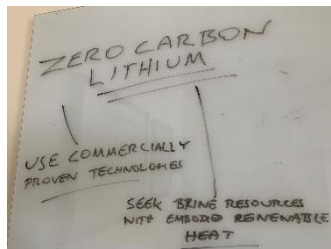 ZERO CARBON
LITHIUM
USE COMMERCIALLY
PROVEN TECHNOLOGIES
SEEK BRINE RESOURCES
WITH EMBODIED RENEWABLE
HEAT